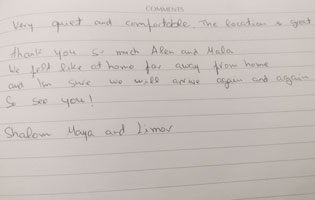 COMMENTS
Very quiet and comfortable. The location is great
thank you so much Alen and Mala
We felt like at home far away from home
and Im sure we will arrive again and again
So see you!
Shalom Maya and Limor